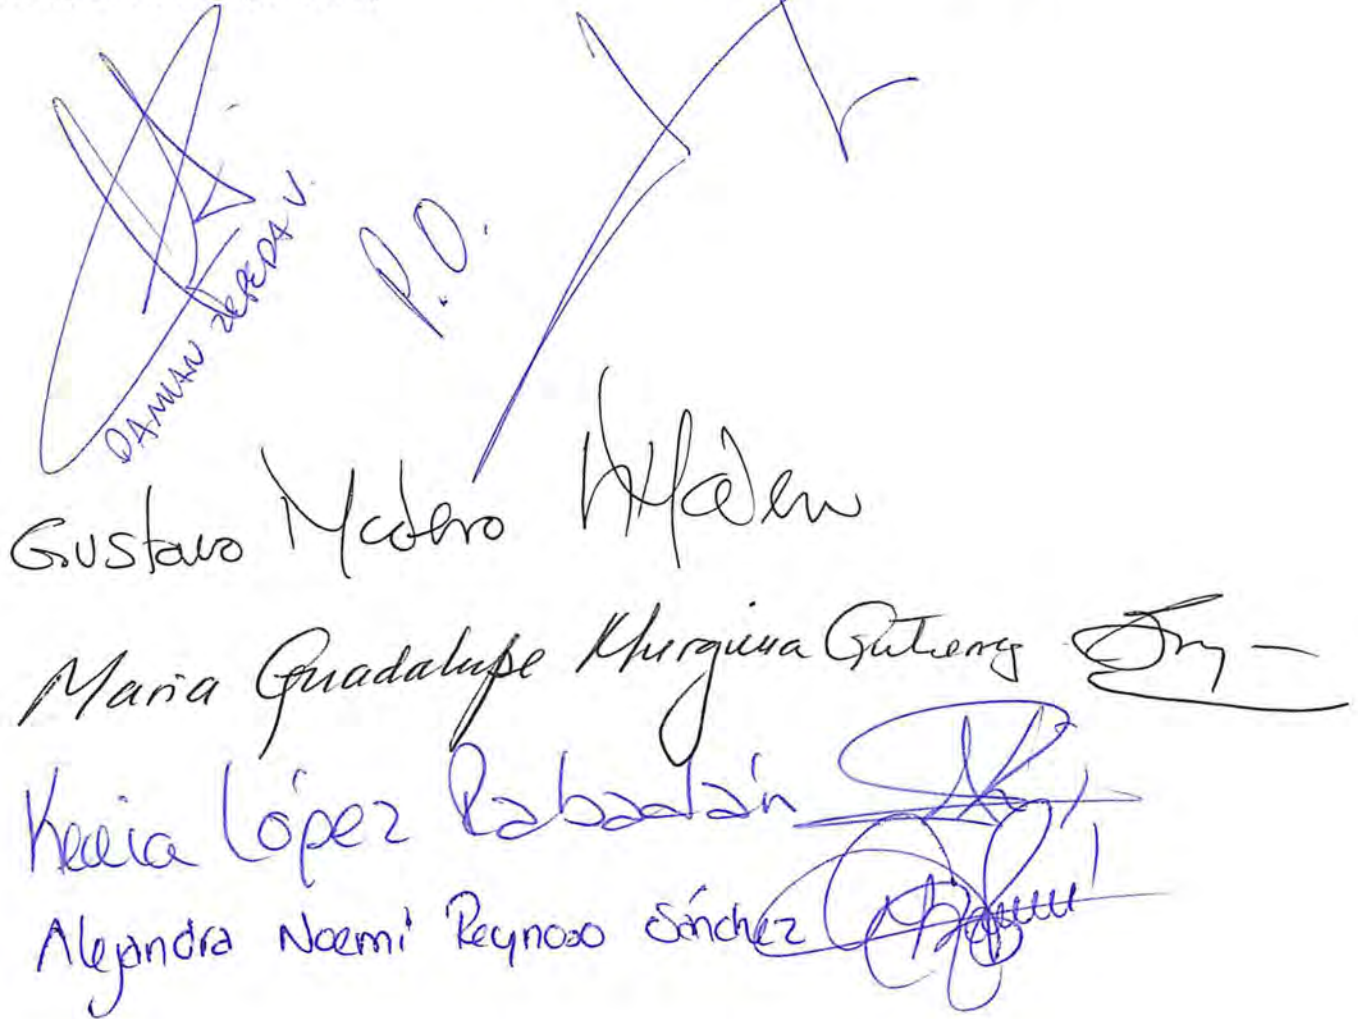 DAMIAN ZEPEDA V.
P.O.
Gustavo Madero
Maria Guadalupe Murguia Gutierrez
Kenia López Rabadán
Alejandra Noemi Reynoso Sánchez